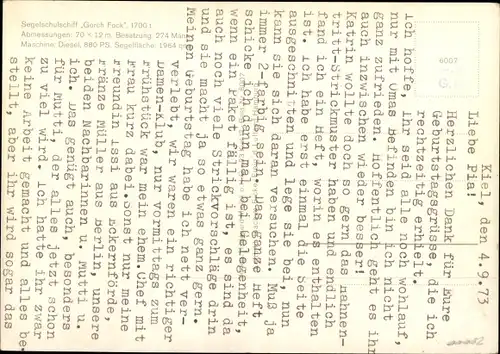 Segelschulschiff „Gorch Fock“, 1700 t
Abmessungen: 70 × 12 m. Besatzung: 274 Mann
Maschine: Diesel, 880 PS. Segelfläche: 1964 q
6007
Kiel, den 4.9.73
Liebe Pia!
Herzlichen Dank für Eure
Geburtstagsgrüsse, die ich
rechtzeitig erhielt.
Ich hoffe, Ihr seid alle noch wohlauf,
nur mit Omas Befinden bin ich nicht
ganz zufrieden. Hoffentlich geht es ihr
auch inzwischen wieder besser!
Katrin wollte doch so gern das Hahnen-
tritt-Strickmuster haben und endlich
fand ich ein Heft, worin es enthalten
ist. Ich habe erst einmal die Seite
ausgeschnitten und lege sie bei, nun
kann sie sich daran versuchen. Muß ja
immer 2-farbig sein. Das ganze Heft
schicke ich dann mal bei Gelegenheit,
wenn ein Paket fällig ist, es sind da
auch noch viele Strickvorschläge drin
und sie macht ja so etwas ganz gern.
Meinen Geburtstag habe ich nett ver-
verlebt, wir waren ein richtiger
Damen-Klub, nur vormittags zum
Frühstück war mein ehem.Chef mit
Frau kurz dabei. Sonst nur meine
Freundin Issi aus Eckernförde,
Franze Müller aus Berlin, unsere
beiden Nachbarinnen u. Mutti u.
ich. Das genügt auch, besonders
für Mutti, der alles jetzt schon
zu viel wird. Ich hatte ihr zwar
keine Arbeit gemacht und alles be-
stellt, aber ihr wird sogar das